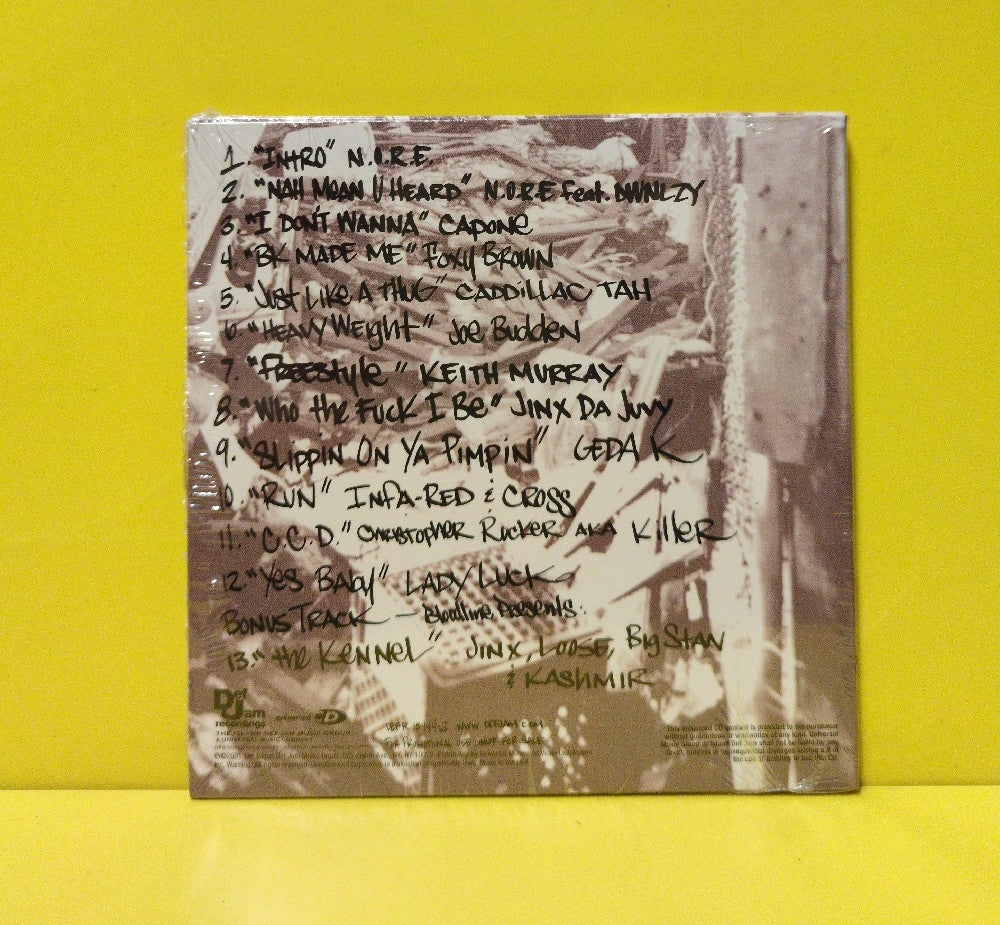 1. "INTRO" N.O.R.E.
2. "NAH MEAN U HEARD" N.O.R.E Feat. DWNLZY
3. "I DON'T WANNA" CAPONE
4. "BK MADE ME" FOXY BROWN
5. "Just LIKE A THUG" CADDILLAC TAH
6. "HEAVY WEIGHT" Joe Budden
7. "FREEstyle" KEITH MURRAY
8. "Who the Fuck I Be" JINX DA JUVY
9. "SLIPPIN ON YA PIMPIN" GEDA K
10. "RUN" INFA-RED & CROSS
11. "C.C.D." CHRISTOPHER RUCKER AKA KILLER
12 "Yes BABY" LADY LUCK
BONUS TRACK — Bloodline Presents:
13. "the KENNEL" JINX, LOOSE, BIG STAN
& KASHMIR
Def Jam
recordings
enhanced CD
WWW.DEFJAM.COM
THE ISLAND DEF JAM MUSIC GROUP
A UNIVERSAL MUSIC COMPANY
FOR PROMOTIONAL USE ONLY NOT FOR SALE